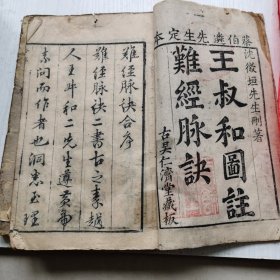 先生定本
沈微垣先生刪著
王叔和圖註
難經脉訣
古吳仁濟堂藏板
難經脉訣合序
難經脉訣二書古之秦越
人王叔和二先生遵黃帝
素問而作者也洞悉理